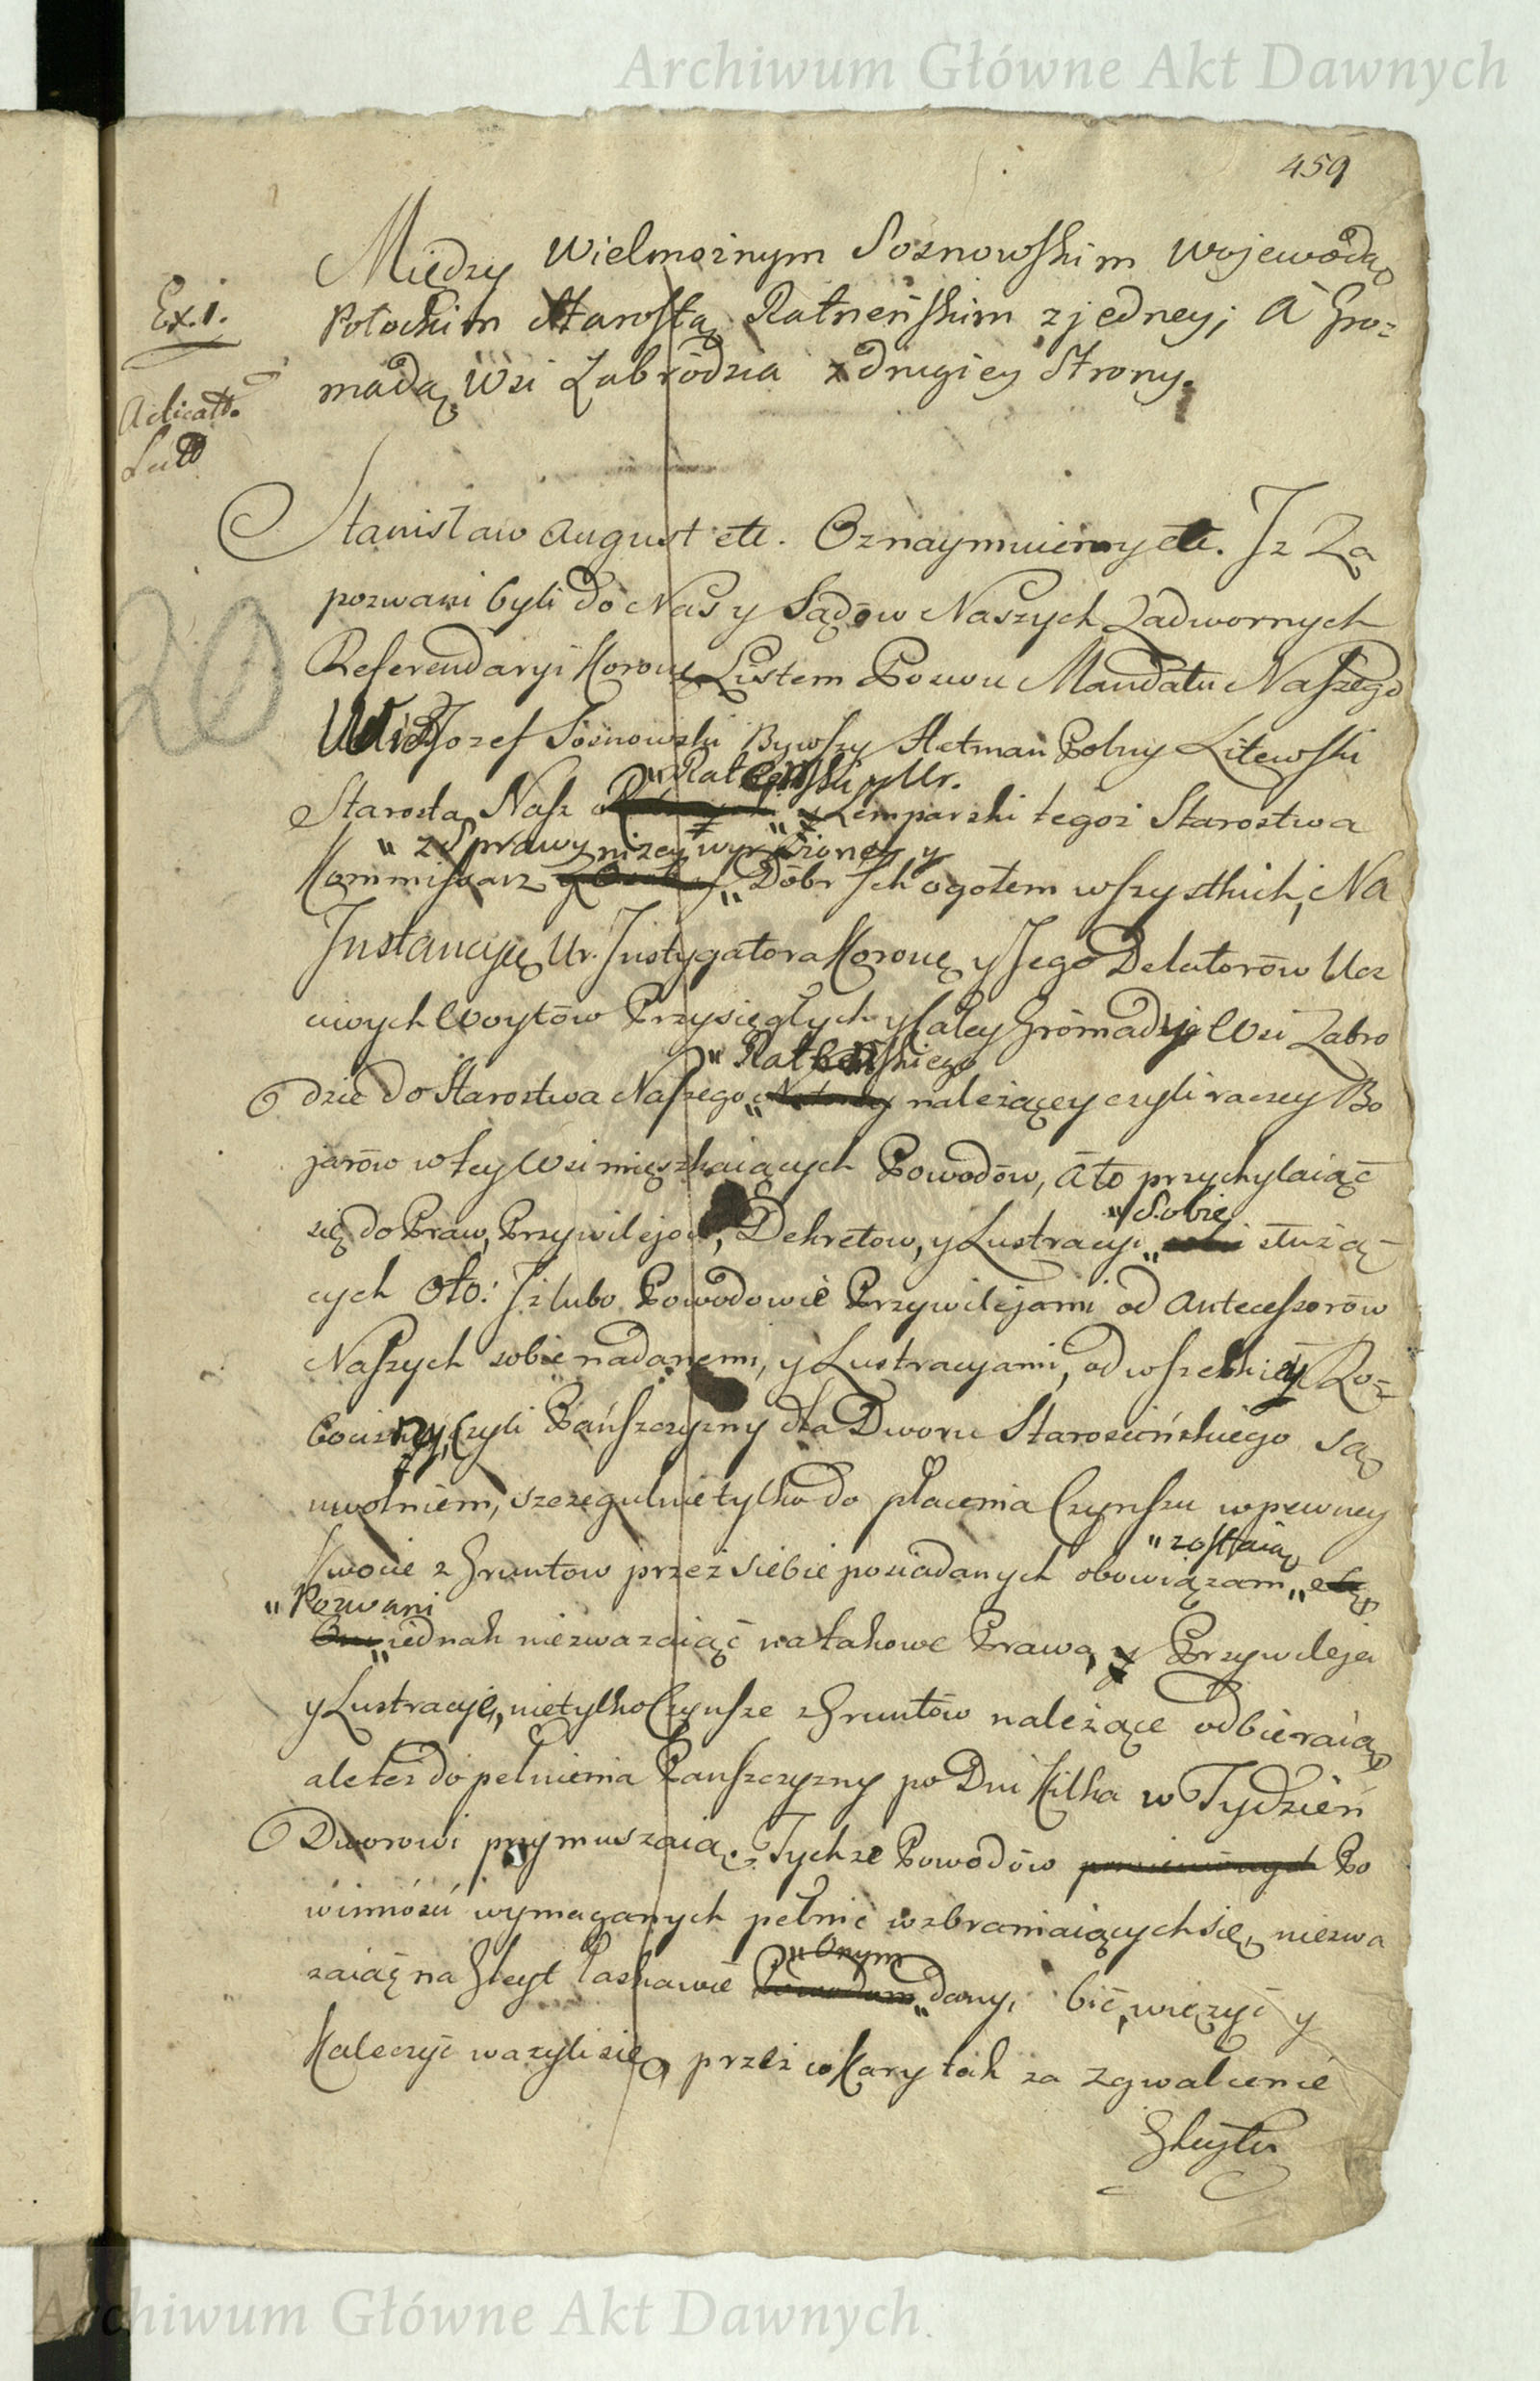 Archiwum Główne Akt Dawnych
459
Między Wielmożnym Sosnowskim Wojewodą
Połockim Starostą Ratneńskim z jedney; A Gro=
madą Wsi Zabrodzia z drugiey Strony.
Ex. 1.
20
Stanisław August etc. Oznaymuiemy etc. Iz Za
pozwani byli do Nas y Sądow Naszych Zadwornych
Referendaryi Koronę Listem Pozwu Mandatu Naszego
Jozef Sosnowski Bywszy Hetman Polny Litewski
"Ratenski y Ur.
Starosta Nasz " Lemparski tegoż Starostwa
" z Sprawy nizey wyrażoney y
Kommissarz " Dóbr Ich ogołem wszystkich, Na
Instancyę Ur. Instygatora Koronę y Jego Delatorów Ucz
ciwych Woytów Przysięgłych y całey Gromady Wsi Zabro
" Ratenskiego
dzie do Starostwa Naszego " należącey czyli raczey Bo
jarów w tey Wsi mięszkaiących Powodów, A to przychylaiąc
" Sobie
się do Praw, Przywilejow, Dekretow, y Lustracyi " służą=
cych Oto: Iż lubo Powodowie Przywilejami od Antecessorów
Naszych sobie nadanemi, y Lustracyami, od wszelkiey Ro=
bocizny, czyli Pańszczyzny dla Dworu Starościńskiego są
uwolniem, szczegulnie tylko do płacenia Czynszu w pewney
" zostaią
Kwocie z Gruntow przez siebie posiadanych obowiązam "
" Pozwani
" iednak niezważaiąc na takowe Prawa, y Przywileja
y Lustracye, nietylko Czynsze z Gruntów należące odbieraią
ale też do pełnienia Panszczyzny po Dni kilka w Tydzień
Dworowi przymuszaią. Tychże Powodów powinnionych Po
winności wymaganych pełnić wzbraniaiących się, niezwa
" Onym
żaiąc na Gleyt łaskawie Powodom " dany, bić, więzyć y
Kaleczyć ważyli się, przez co Kary tak za zgwałcenie
Gleytu
Archiwum Główne Akt Dawnych